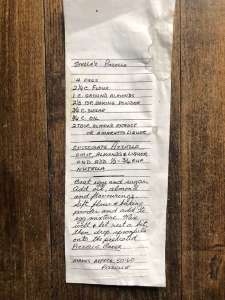 Pizzelle
4 EGGS
2 1/2 C. FLOUR
1 C. GROUND ALMONDS
BAKING POWDER
3/4 C. SUGAR
OIL
ALMOND EXTRACT
OR AMARETTO LIQUOR
OMIT ALMONDS & LIQUOR
AND ADD 1/2 - 3/4 CUP
NUTELLA
Beat eggs and sugar.
Add oil, almonds
and flavourings.
Sift flour & baking
powder and add to
egg mixture. Mix
well & let rest a bit,
then drop spoonfuls
onto the preheated
Pizzelle maker
MAKES APPROX. 50-60
PIZZELLE